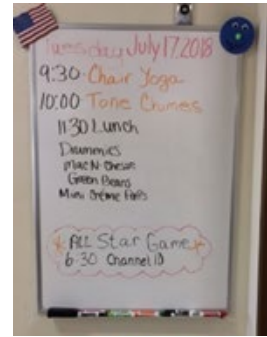 Tuesday July 17, 2018
9:30 Chair Yoga
10:00 Tone Chimes
11:30 Lunch
Drummies
Mac N Cheese
Green Beans
Mini Creme Puffs
ALL Star Game
6:30 Channel 10